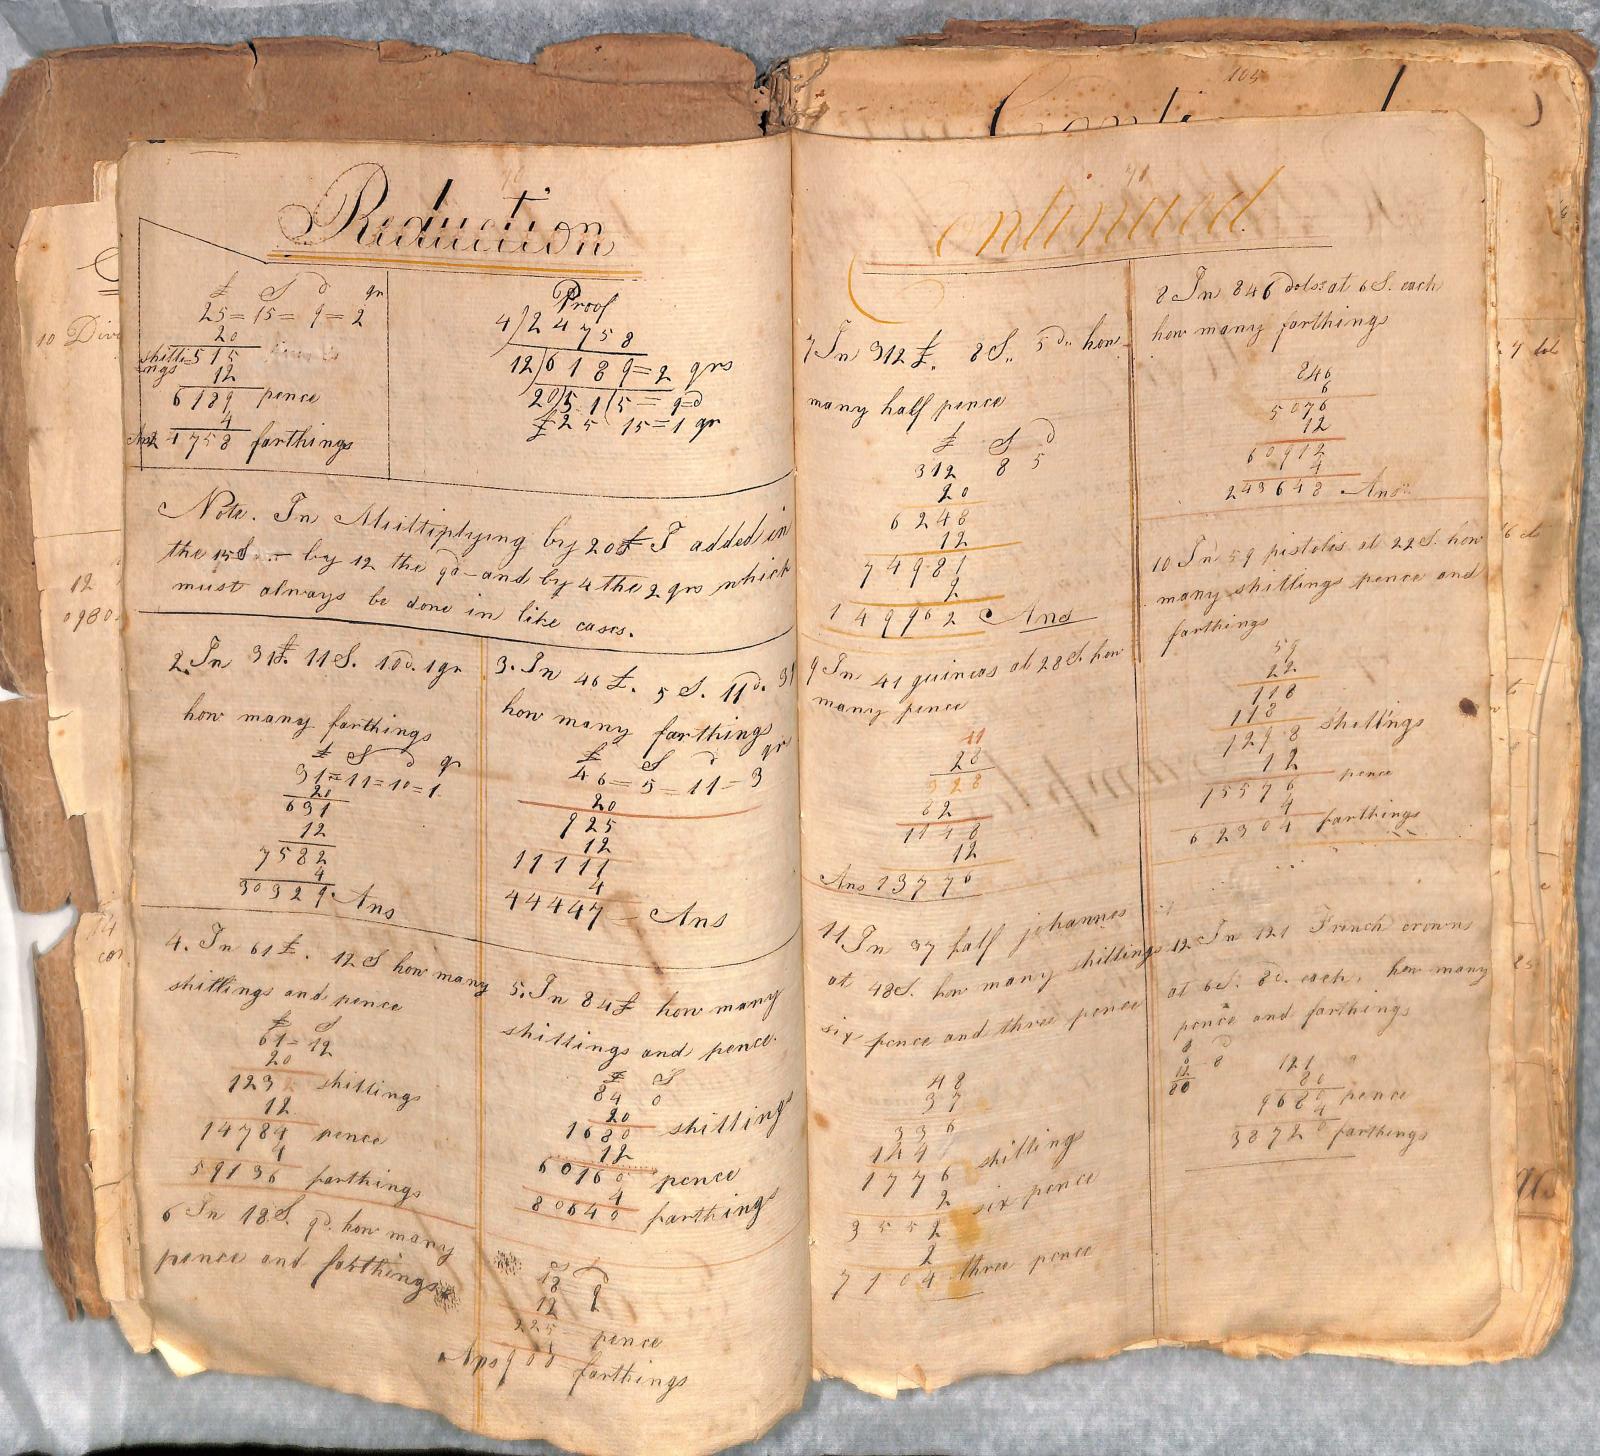 70
Reduction
£ S d qr
25=15=9=2
20
shilli
ngs 515
12
6189 pence
4
Ans 24758 farthings
Proof
4)24758
12)6189=2 qrs
20)51(5=9d
£25 15=1 qr
Note. In Multiplying by 20£ I added in
the 15S - by 12 the 9d - and by 4 the 2 qrs which
must always be done in like cases.
2. In 31£. 11S. 10d. 1qr
how many farthings
£ S d qr
31=11=10=1
20
631
12
7582
4
30329. Ans
3. In 46£. 5S. 11d. 3
how many farthings
£ S d qr
46=5=11=3
20
925
12
11111
4
44447 Ans
4. In 61£. 12S how many
shillings and pence
£ S
61=12
20
1232 shillings
12
14784 pence
4
59136 farthings
5. In 84£ how many
shillings and pence.
£ S
84 0
20
1680 shilling
12
60160 pence
4
80640 farthing
6 In 18S. 9d. how many
pence and farthings
S d
18 9
12
225 pence
4
Ans 900 farthings
105
Conti
71
Continued
7 In 312£. 8S.. 5d.. how
many half pence
£ S d
312 8 5
20
6248
12
74981
2
149962 Ans
8 In 846 dols: at 6S. each
how many farthings
846
6
5076
12
60912
4
243648 Ans
9 In 41 guineas at 28S. how
many pence
41
28
328
82
1148
12
Ans 13776
10 In 59 pistolis at 22S. how
many shillings pence and
farthings
59
22
118
118
1298 shillings
12
15576 pence
4
62304 farthings
11 In 37 half johannes
at 48S. how many shillings
six pence and three pence
48
37
336
144
1776 shilling
2
3552 six pence
2
7104 three pence
12 In 121 French crowns
at 6S. 8d. each. how many
pence and farthings
12
80
121
80
9680 pence
4
38720 farthings
10
12
0980